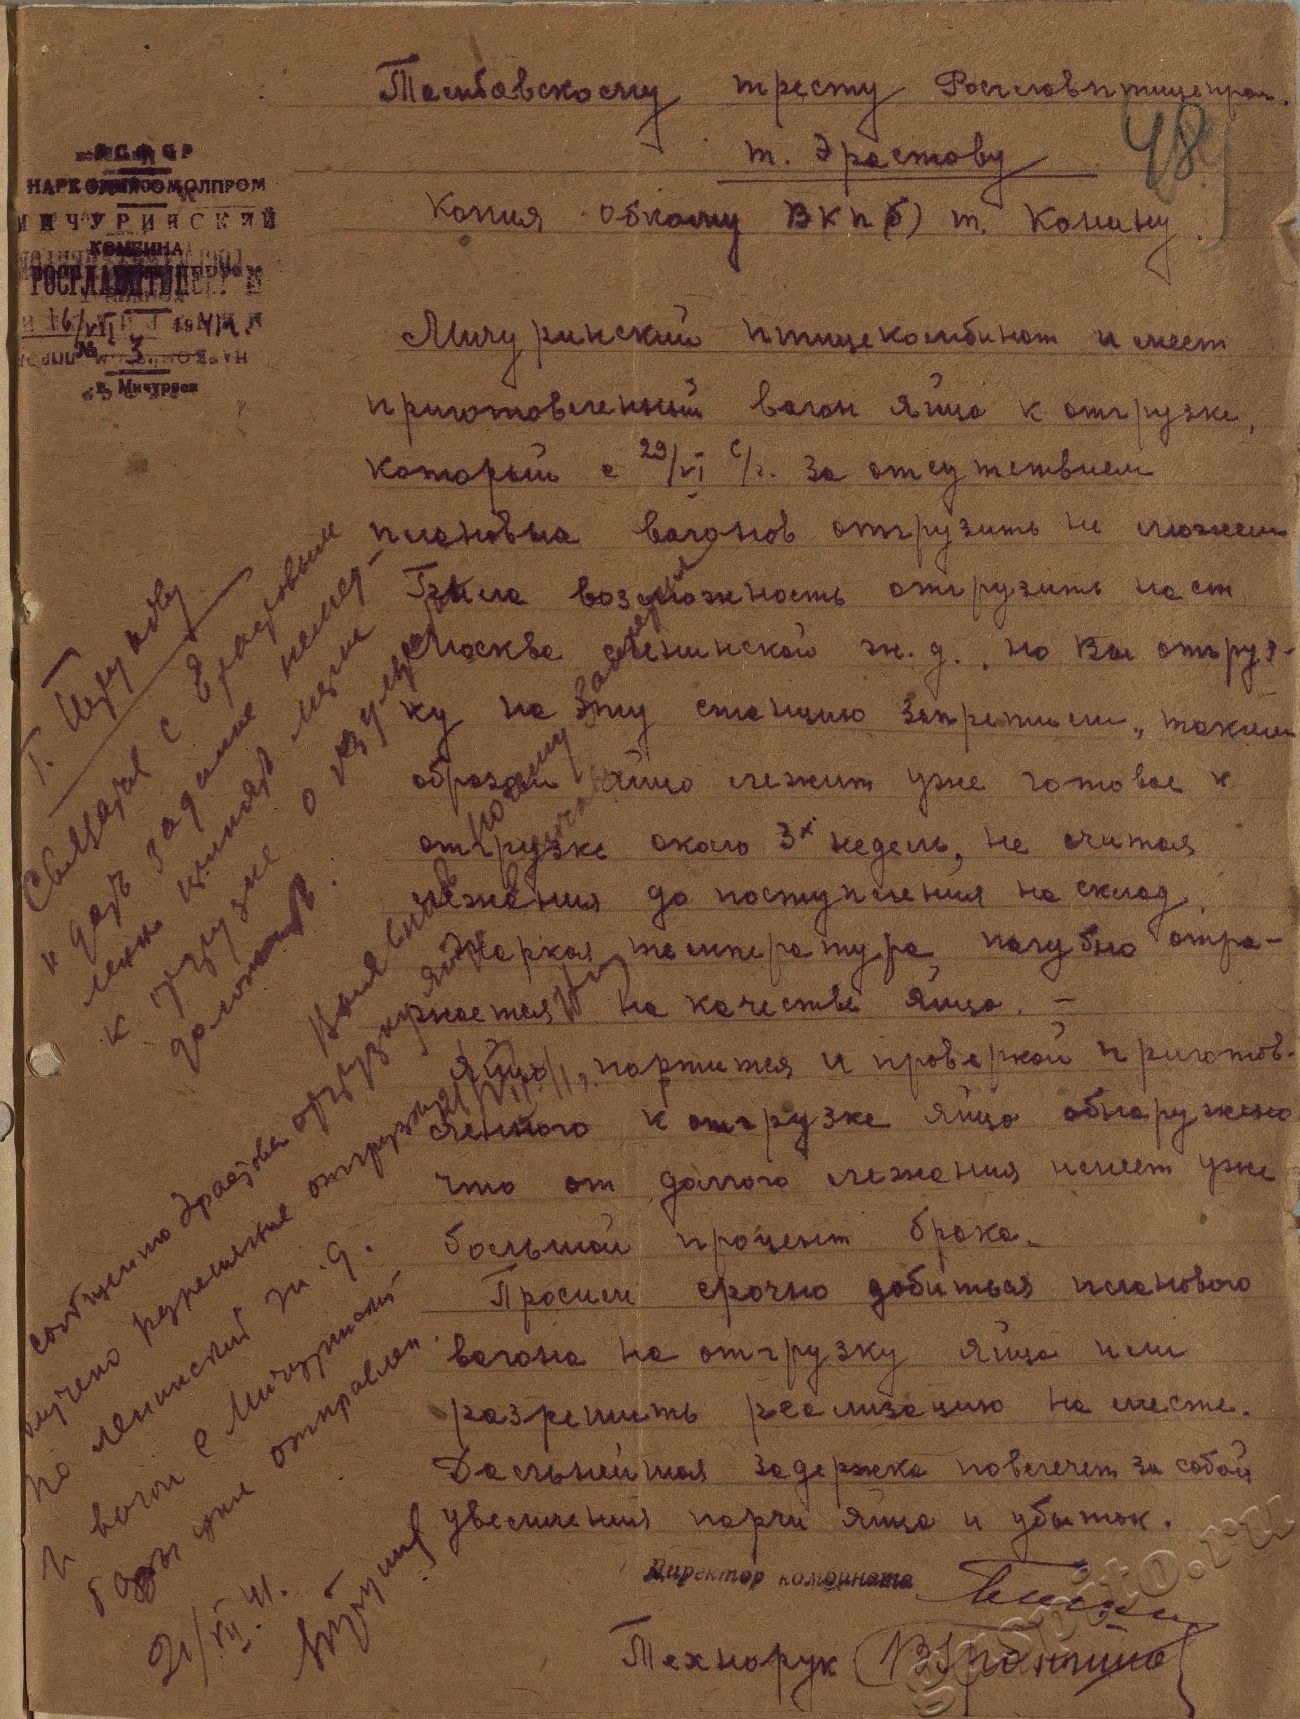 Тамбовскому тресту Росглавптицепром.
т. Эрастову
48
Копия Обкому ВКП(б) т. Комину
РСФСР
НАРКОММЯСОМОЛПРОМ
МИЧУРИНСКИЙ
КОМБИНАТ
РОСГЛАВПТИЦЕПРОМ
16/VII 1941 г.
№ 3
г. Мичуринск
Мичуринский птицекомбинат имеет
приготовленный вагон яйца к отгрузке,
который с 29/VI с/г. за отсутствием
плановых вагонов отгрузить не можем
Была возможность отгрузить на ст
Москва Ленинской ж. д., но Вы отгруз-
ку на эту станцию запретили, таким
образом яйцо лежит уже готовое к
отгрузке около 3х недель, не считая
лежания до поступления на склад.
Жаркая температура пагубно отра-
жается на качестве яйца. —
Яйцо портится и проверкой приготов-
ленного к отгрузке яйца обнаружено
что от долгого лежания имеет уже
большой процент брака.
Просим срочно добиться планового
вагона на отгрузку яйца или
разрешить реализацию на месте.
Дальнейшая задержка повлечет за собой
увеличения порчи яйца и убыток.
Директор комбината
Технорук
Т.
Связаться с Эрастовым
и дать задание немед-
ленно принять меры
к отгрузке о результатах
доложить.
Выяснить почему запретил
отгрузку яйца
21/VII
сообщению Эрастова
получено разрешение отгрузки
по Ленинской ж. д.
и вагон с Мичуринской
базы уже отправлен.
21/VII 41.